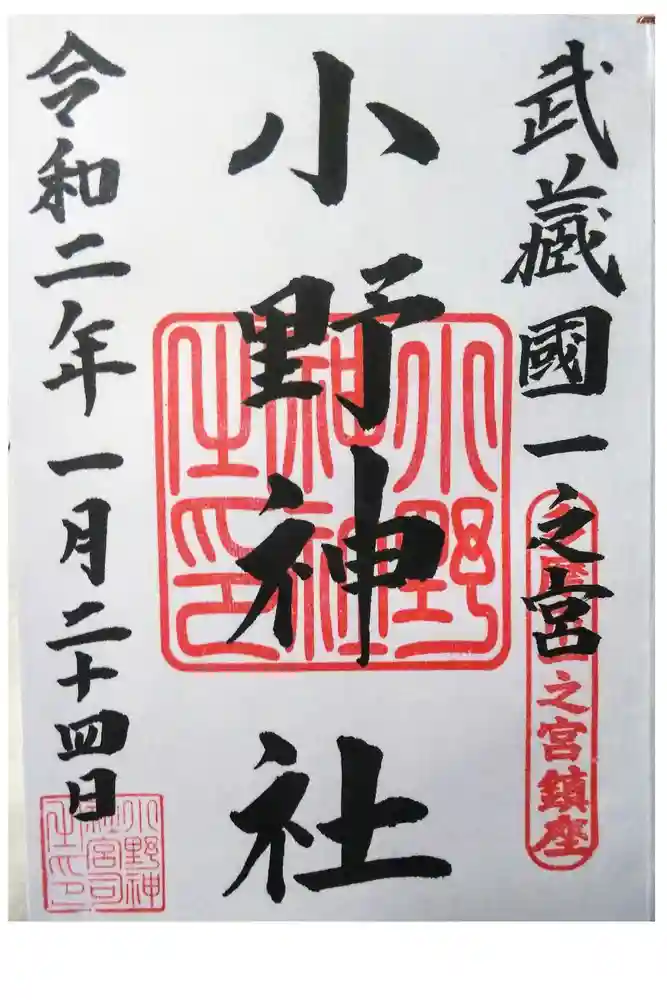 武蔵國一之宮
之宮鎮座
小野神社
小野神社之印
令和二年一月二十四日
小野神社宮司之印